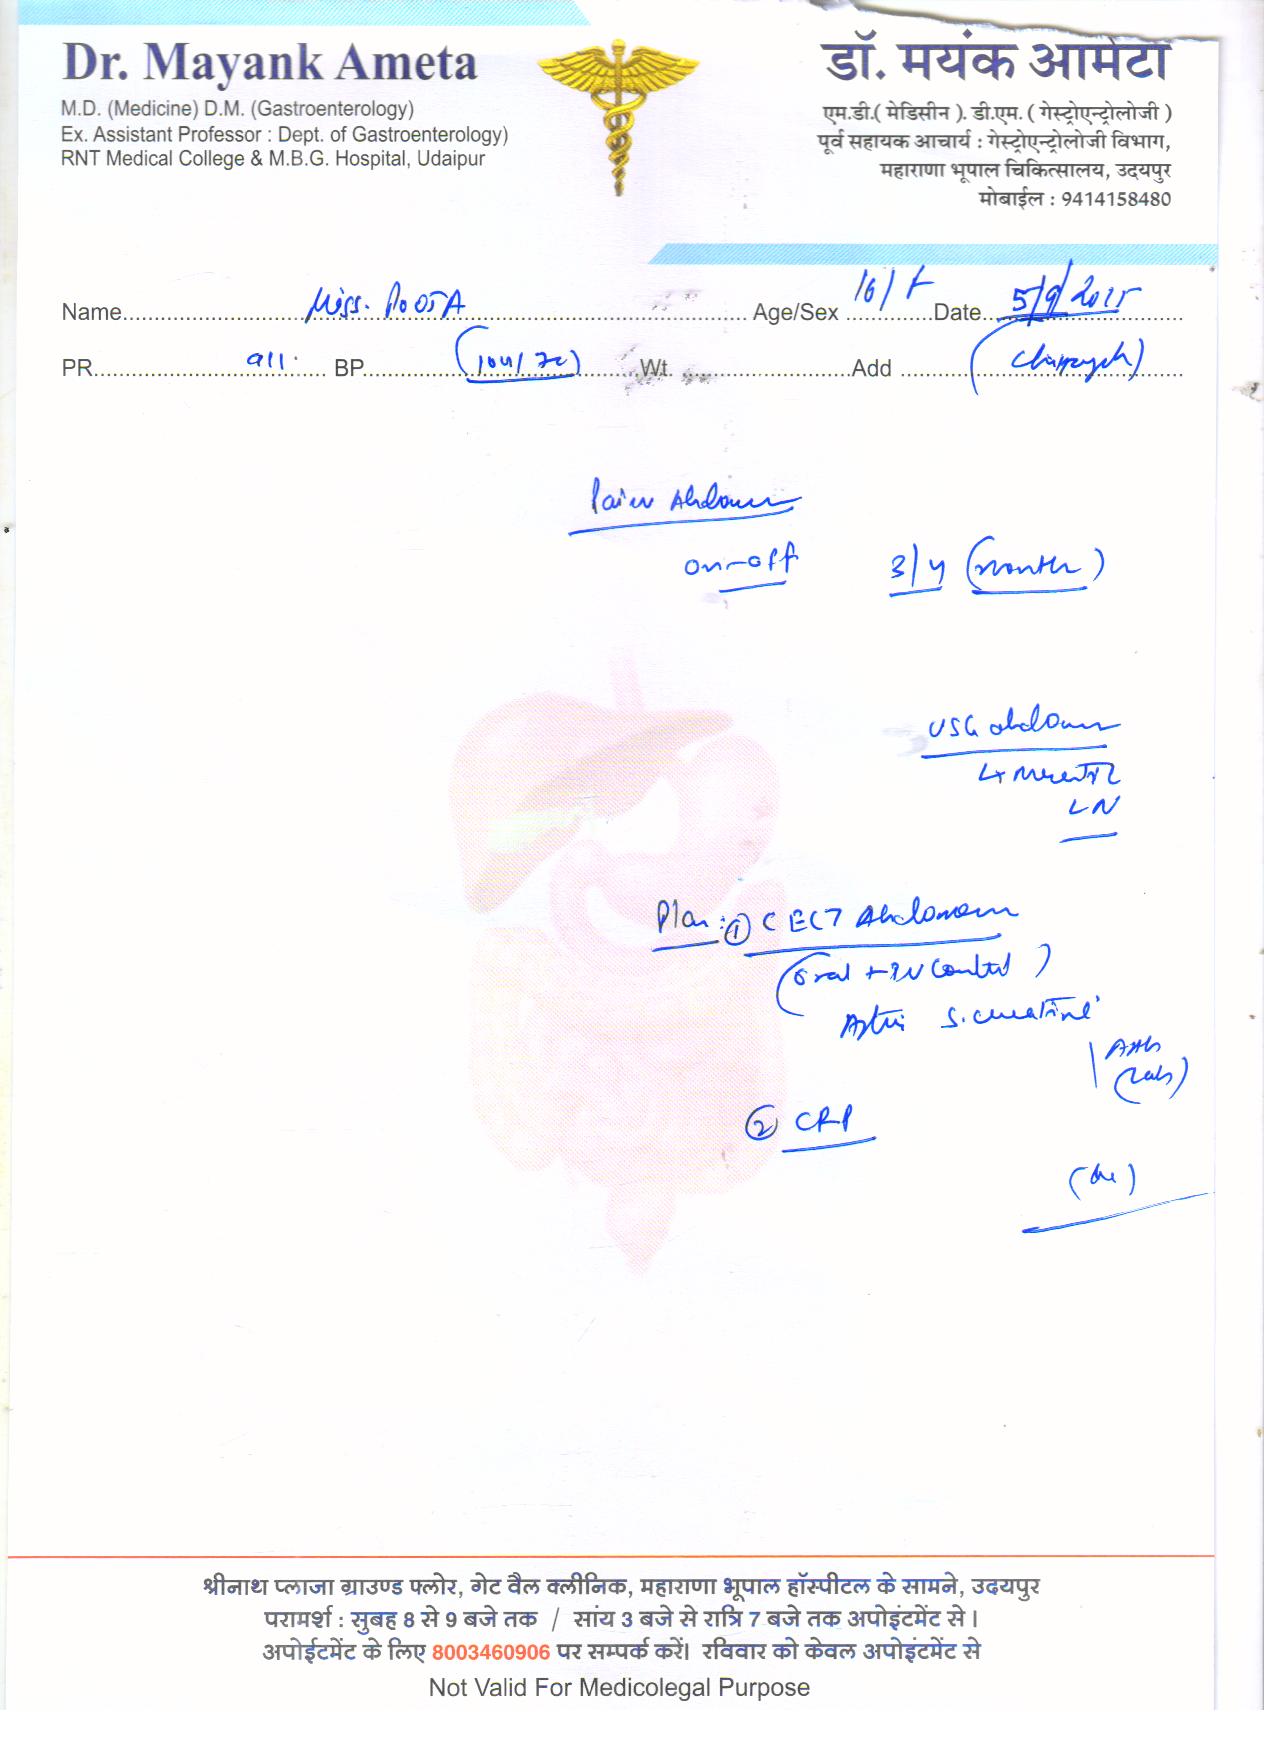 Dr. Mayank Ameta
M.D. (Medicine) D.M. (Gastroenterology)
Ex. Assistant Professor : Dept. of Gastroenterology)
RNT Medical College & M.B.G. Hospital, Udaipur
डॉ. मयंक आमेटा
एम.डी.( मेडिसीन ). डी.एम. ( गेस्ट्रोएन्ट्रोलोजी )
पूर्व सहायक आचार्य : गेस्ट्रोएन्ट्रोलोजी विभाग,
महाराणा भूपाल चिकित्सालय, उदयपुर
मोबाईल : 9414158480
Name Miss. POOJA Age/Sex 16/F Date 5/9/2015
PR 911 BP (104/70) Wt Add
Pain Abdomen
on-off 3/4 (month)
USG abdomen
mesenteric
LN
Plan: ① CECT Abdomen
(oral + IV Contrast)
After S. creatinine
② CRP
श्रीनाथ प्लाजा ग्राउण्ड फ्लोर, गेट वैल क्लीनिक, महाराणा भूपाल हॉस्पीटल के सामने, उदयपुर
परामर्श : सुबह 8 से 9 बजे तक / सांय 3 बजे से रात्रि 7 बजे तक अपोइंटमेंट से ।
अपोईटमेंट के लिए 8003460906 पर सम्पर्क करें। रविवार को केवल अपोइंटमेंट से
Not Valid For Medicolegal Purpose